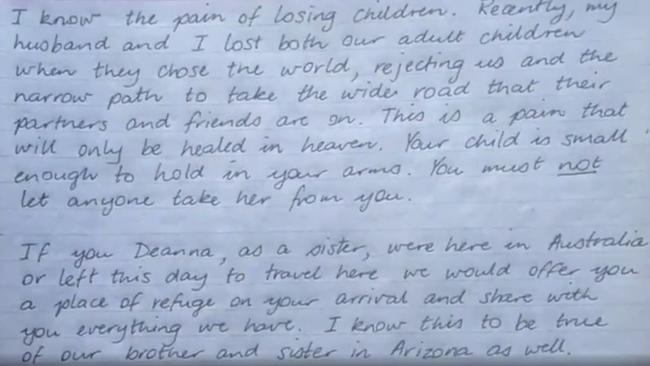 I know the pain of losing children. Recently, my
husband and I lost both our adult children
when they chose the world, rejecting us and the
narrow path to take the wide road that their
partners and friends are on. This is a pain that
will only be healed in heaven. Your child is small
enough to hold in your arms. You must not
let anyone take her from you.
If you Deanna, as a sister, were here in Australia
or left this day to travel here we would offer you
a place of refuge on your arrival and share with
you everything we have. I know this to be true
of our brother and sister in Arizona as well.